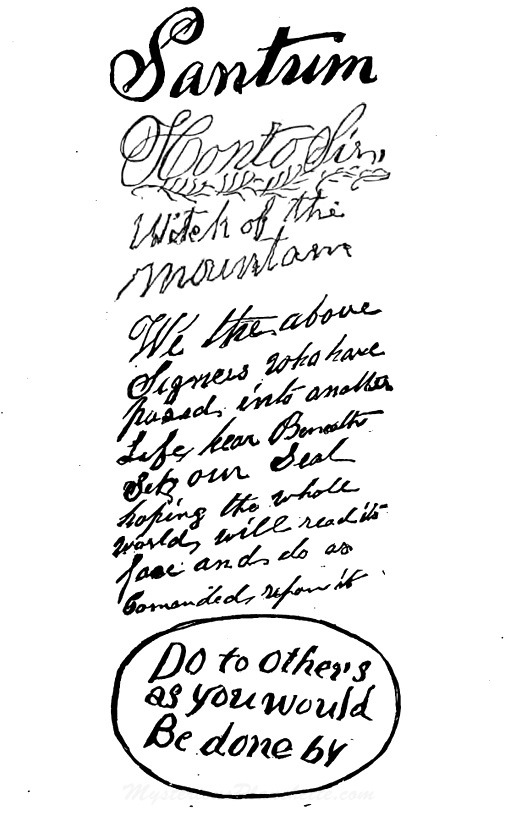 Santum
Honto Sir,,
Witch of the
Mountain
We the above
Signers who have
passed into another
Life hear Beneath
Set our Seal
hoping the whole
world, will read its
face and do as
Comanded upon it
Do to others
as you would
Be done by